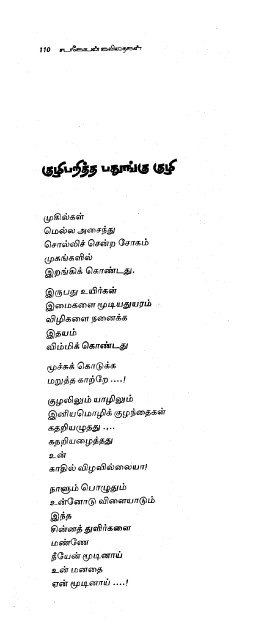 110
குழிபறித்த பதுங்கு குழி
முகில்கள்
மெல்ல அசைந்து
சொல்லிச் சென்ற சோகம்
முகங்களில்
இறங்கிக் கொண்டது.
இருபது உயிர்கள்
இமைகளை மூடியதுயரம்
விழிகளை நனைக்க
இதயம்
விம்மிக் கொண்டது
மூச்சுக் கொடுக்க
மறுத்த காற்றே ....!
குழலிலும் யாழிலும்
இனியமொழிக் குழந்தைகள்
கதறியழுதது ....
கதறியழைத்தது
உன்
காதில் விழவில்லையா!
நாளும் பொழுதும்
உன்னோடு விளையாடும்
இந்த
சின்னத் துளிர்களை
மண்ணே
நீயேன் மூடினாய்
உன் மனதை
ஏன் மூடினாய் ....!